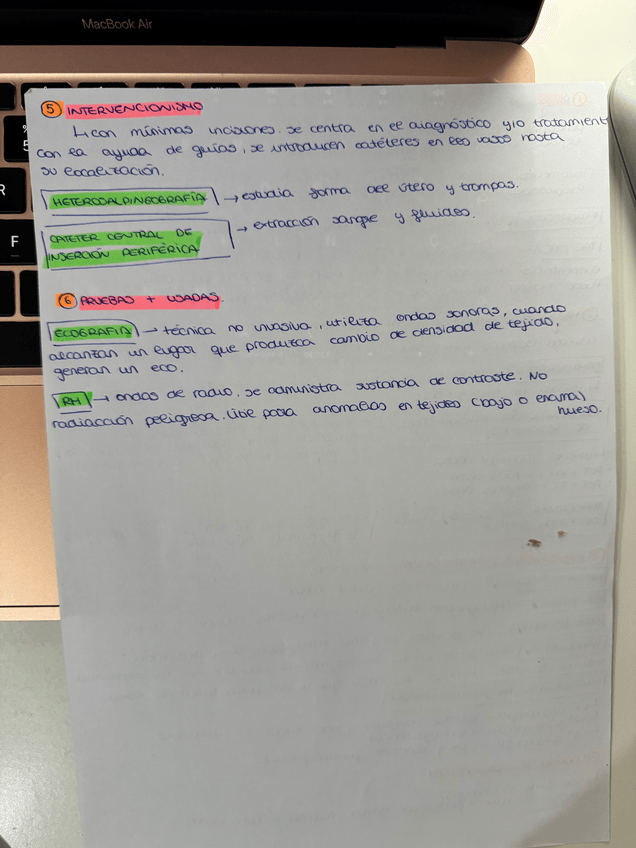 MacBook Air
5 INTERVENCIONISMO
↳ con mínimas incisiones. se centra en el diagnóstico y/o tratamient
con la ayuda de guías, se introducen catéteres en los vasos hasta
su localización.
HISTEROSALPINGOGRAFÍA → estudia forma del útero y trompas.
CATETER CENTRAL DE → extracción sangre y fluidos.
INSERCIÓN PERIFÉRICA
6 PRUEBAS + USADAS.
ECOGRAFIA → técnica no invasiva, utiliza ondas sonoras, cuando
alcanzan un lugar que produzca cambio de densidad de tejido,
generan un eco.
RM → ondas de radio, se administra sustancia de contraste. No
radiación peligrosa. Útil para anomalías en tejidos (bajo o encima)
hueso.